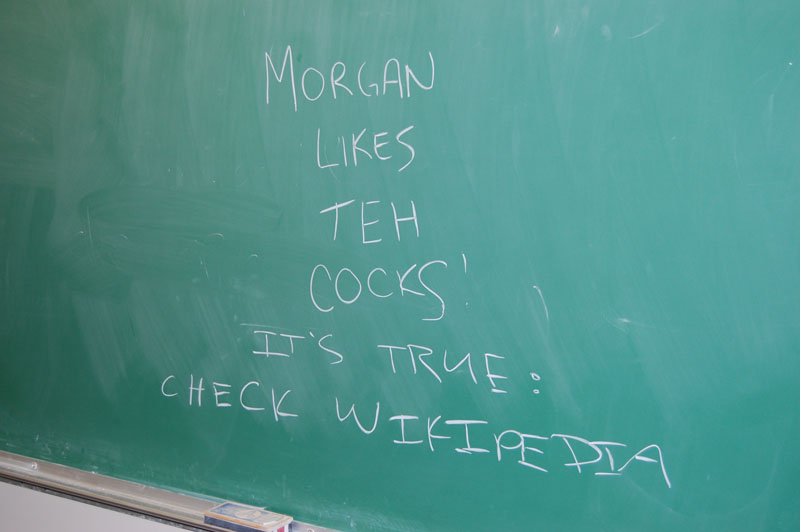 MORGAN
LIKES
TEH
COCKS!
IT'S TRUE:
CHECK WIKIPEDIA